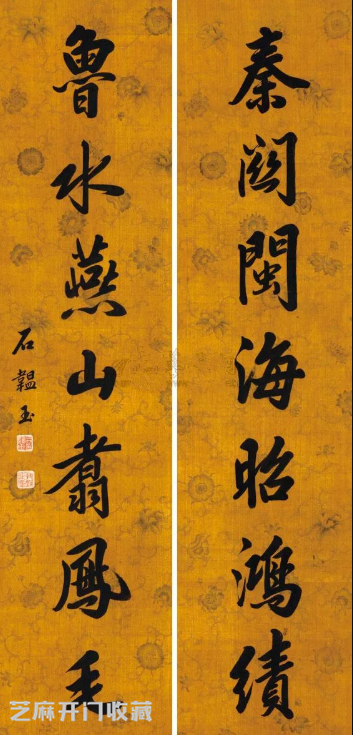 秦關閩海昭鴻績
魯水燕山翥鳳毛
石韞玉
芝麻开门收藏